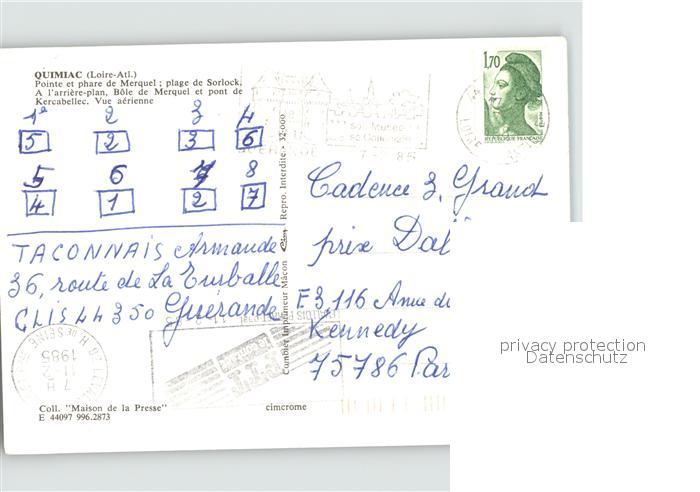 QUIMIAC (Loire-Atl.)
Pointe et phare de Merquel ; plage de Sorlock.
A l'arrière-plan, Bôle de Merquel et pont de
Kercabellec. Vue aérienne
1e 2 3 4
5 2 3 6
5 6 7 8
4 1 2 7
TACONNAIS Armande
36, route de La Turballe
CLIS 44350 Guérande
Coll. "Maison de la Presse"
E 44097 996.2873
cimcrome
Combier Imprimeur Mâcon
Repro. Interdite - 32-000
1,70
REPUBLIQUE FRANÇAISE
LOIRE
son Musée
sa Collégiale
85
Cadence 3, Grand
prix Dal
E3, 116 Av
Kennedy
75786 Par
1985
privacy protection
Datenschutz